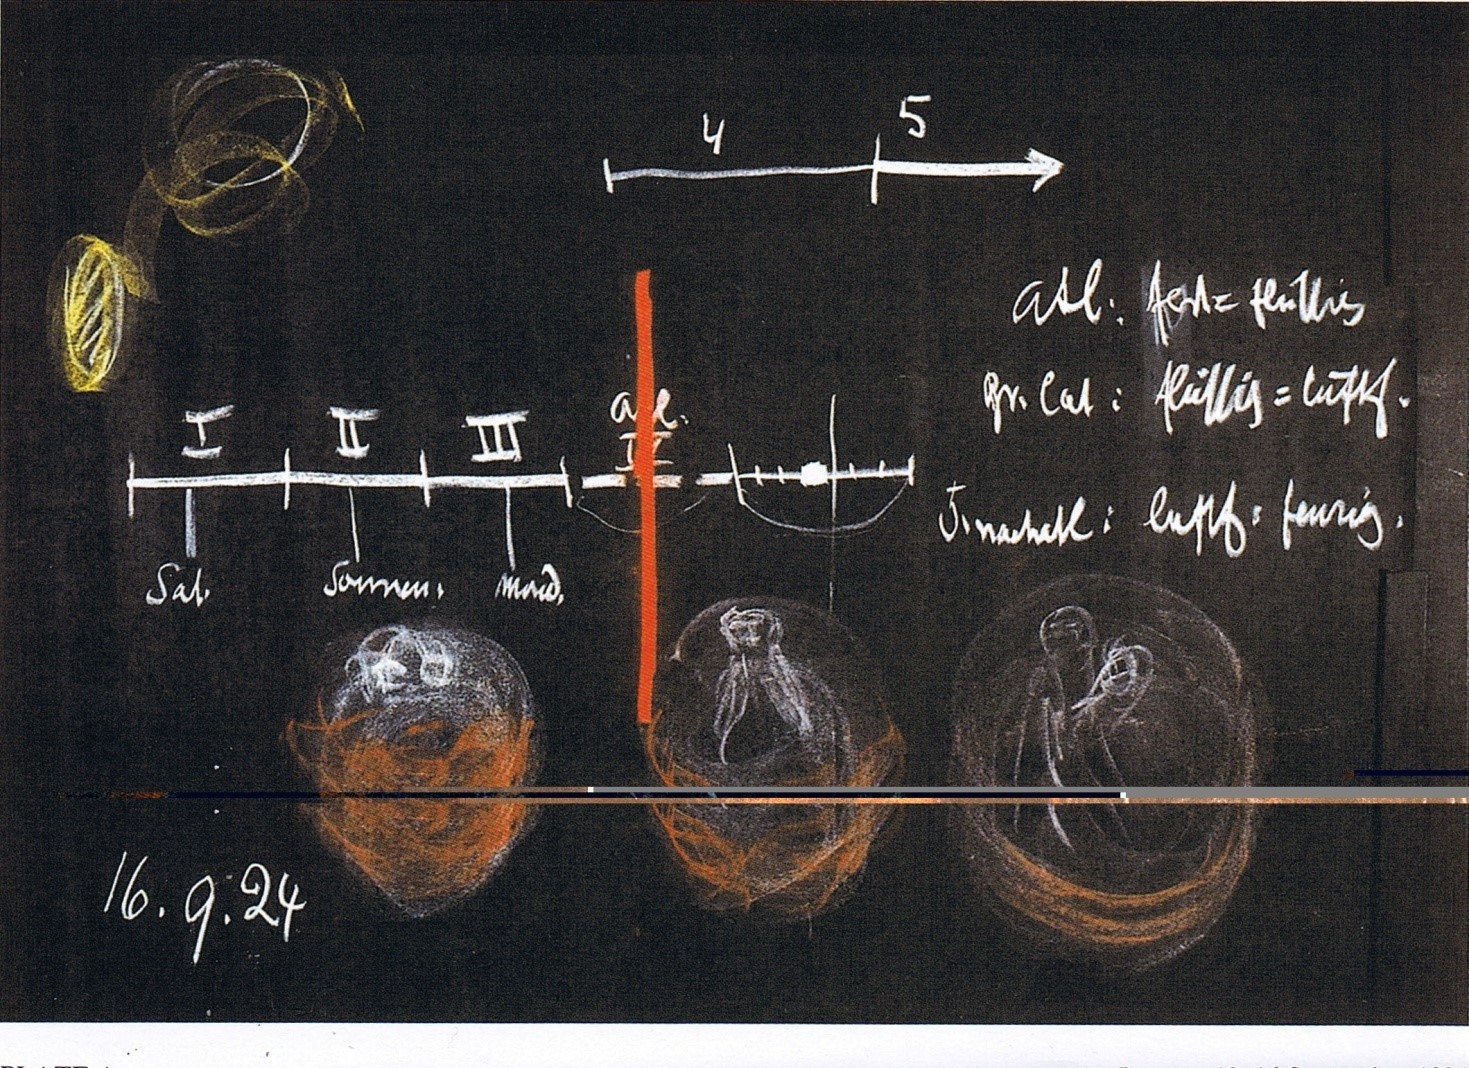 4 5
atl: fest = flüssig
gr. Cat: flüssig = luftf.
I II III IV
luftf: feurig.
Sat. Sonnen. Mond.
16. 9. 24